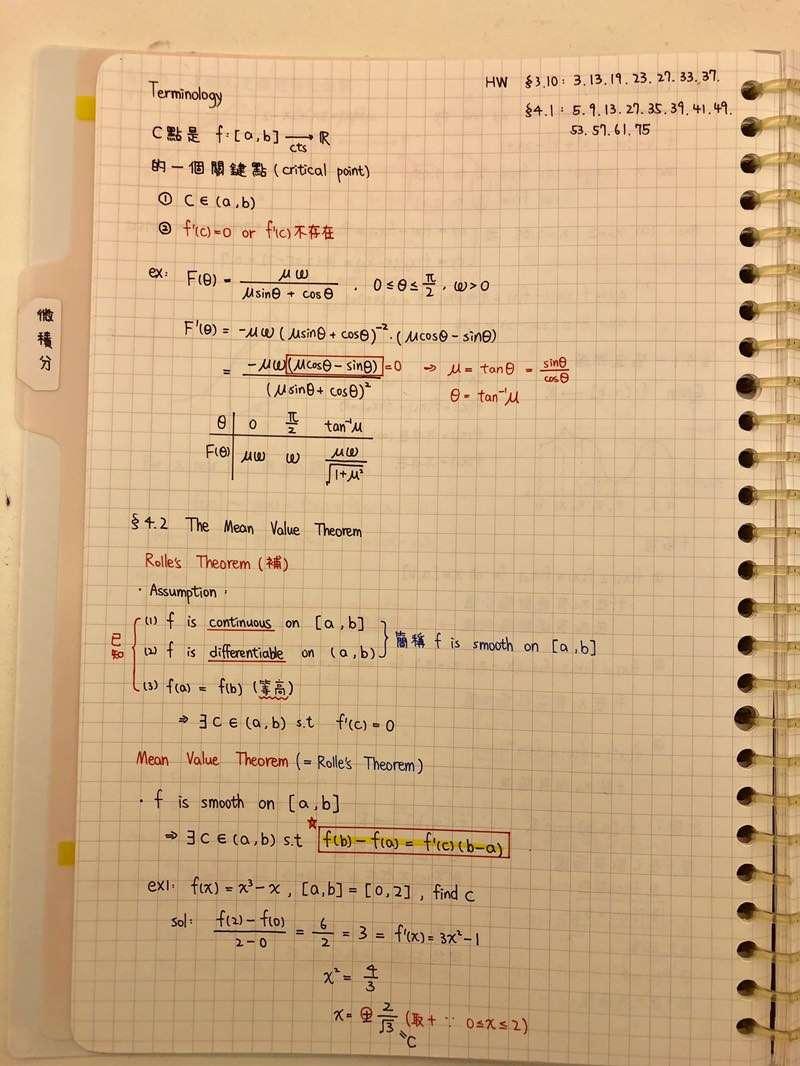 HW §3.10: 3.13.19.23.27.33.37.
§4.1: 5.9.13.27.35.39.41.49.
53.57.61.75
Terminology
C點是 f:[a,b] →cts ℝ
的一個關鍵點(critical point)
① C∈(a,b)
② f'(c)=0 or f'(c)不存在
ex: F(θ) = μω / (μsinθ + cosθ) , 0≤θ≤π/2 , ω>0
F'(θ) = -μω(μsinθ + cosθ)⁻²·(μcosθ - sinθ)
= -μω(μcosθ - sinθ) / (μsinθ + cosθ)² =0 → μ = tanθ = sinθ/cosθ
θ = tan⁻¹μ
微積分
θ 0 π/2 tan⁻¹μ
F(θ) μω ω μω/√(1+μ²)
§4.2 The Mean Value Theorem
Rolle's Theorem(補)
· Assumption:
已知
(1) f is continuous on [a,b]
(2) f is differentiable on (a,b)
簡稱 f is smooth on [a,b]
(3) f(a) = f(b) (等高)
⇒ ∃C∈(a,b) s.t f'(c)=0
Mean Value Theorem (= Rolle's Theorem)
· f is smooth on [a,b]
⇒ ∃C∈(a,b) s.t ★ f(b)-f(a) = f'(c)(b-a)
ex1: f(x)=x³-x , [a,b]=[0,2] , find C
sol: (f(2)-f(0))/(2-0) = 6/2 = 3 = f'(x)=3x²-1
x² = 4/3
x= ⊕ 2/√3 (取+ ∵ 0≤x≤2)
C